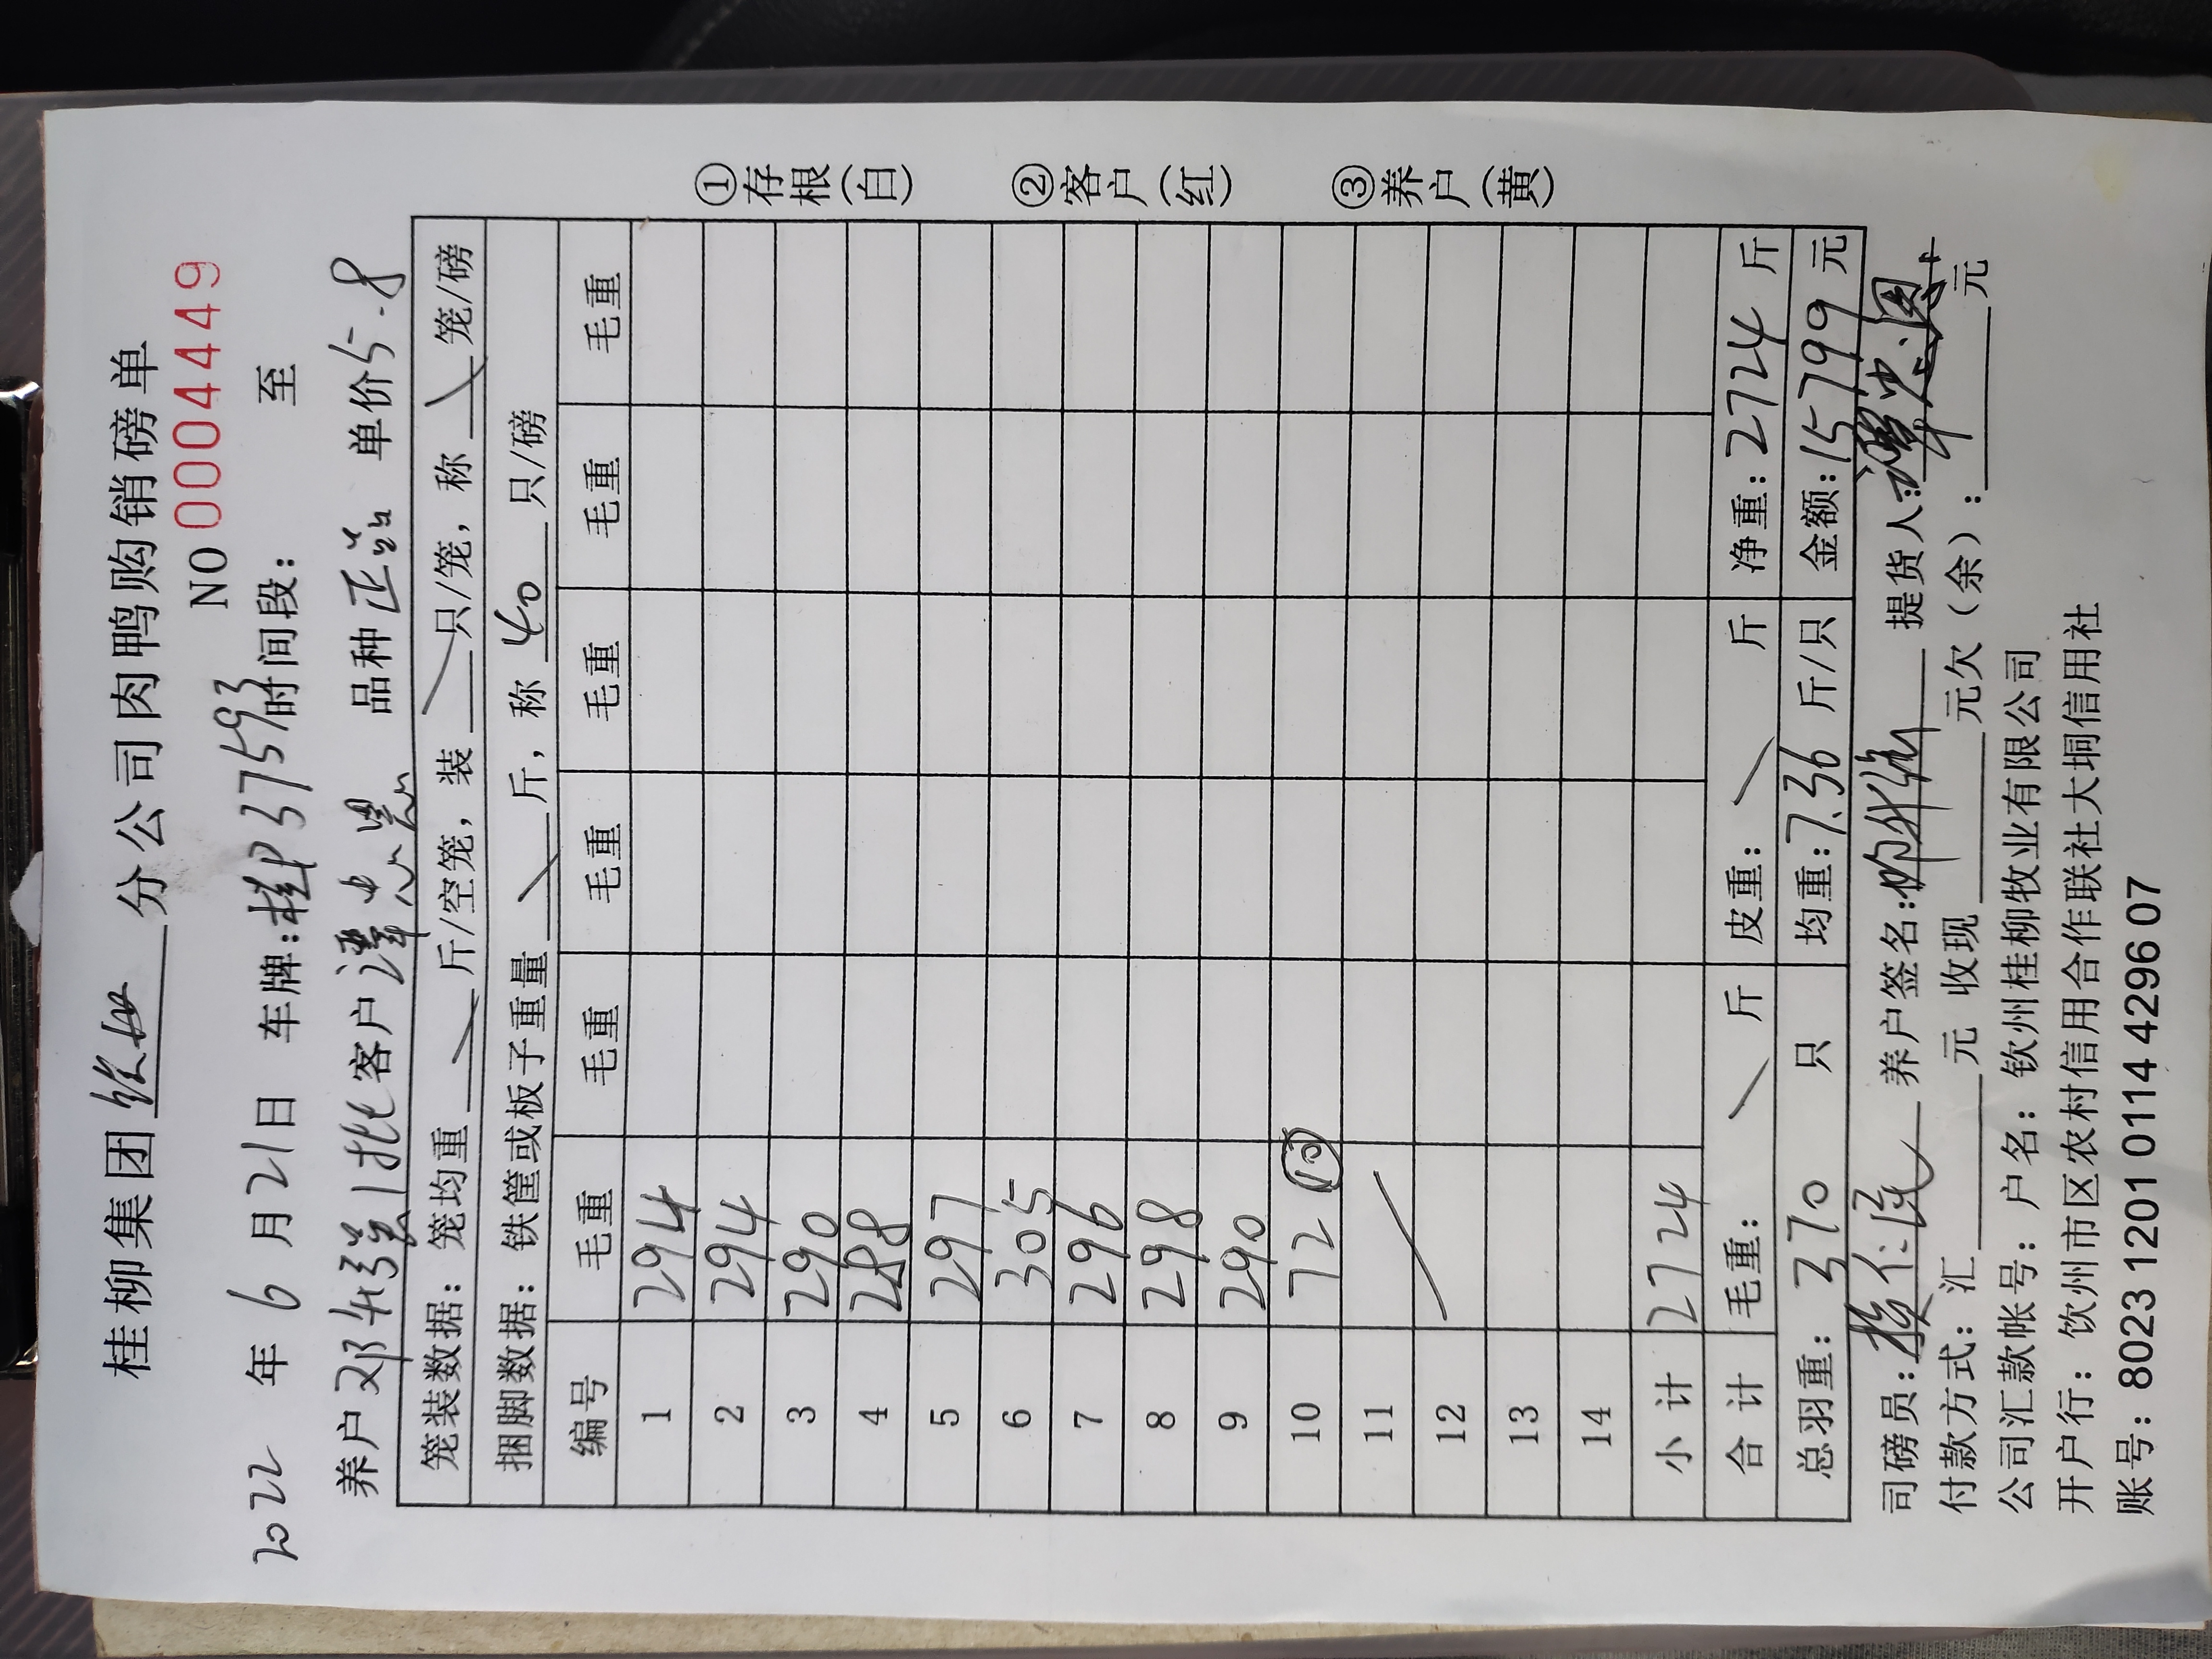 桂柳集团 分公司肉鸭购销磅单
NO 0004449
2022 年 6 月 21 日 车牌:桂P37593 时间段: 至
养户 邓 1批 客户 谭忠恩 品种 正品 单价 5.8
笼装数据: 笼均重 斤/空笼, 装 只/笼, 称 笼/磅
捆脚数据: 铁筐或板子重量 斤, 称 40 只/磅
编号 毛重 毛重 毛重 毛重 毛重 毛重
1 294
2 294
3 290
4 288
5 297
6 305
7 296
8 298
9 290
10 72 ⑩
11
12
13
14
小计 2724
合计 毛重: 斤 皮重: 斤 净重: 2724 斤
总羽重: 370 只 均重: 7.36 斤/只 金额: 15799 元
司磅员: 养户签名: 提货人: 谭忠恩
付款方式: 汇 元 收现 元欠(余): 元
公司汇款帐号: 户名: 钦州桂柳牧业有限公司
开户行: 钦州市区农村信用合作联社大垌信用社
账号: 8023 1201 0114 4296 07
①存根(白)
②客户(红)
③养户(黄)